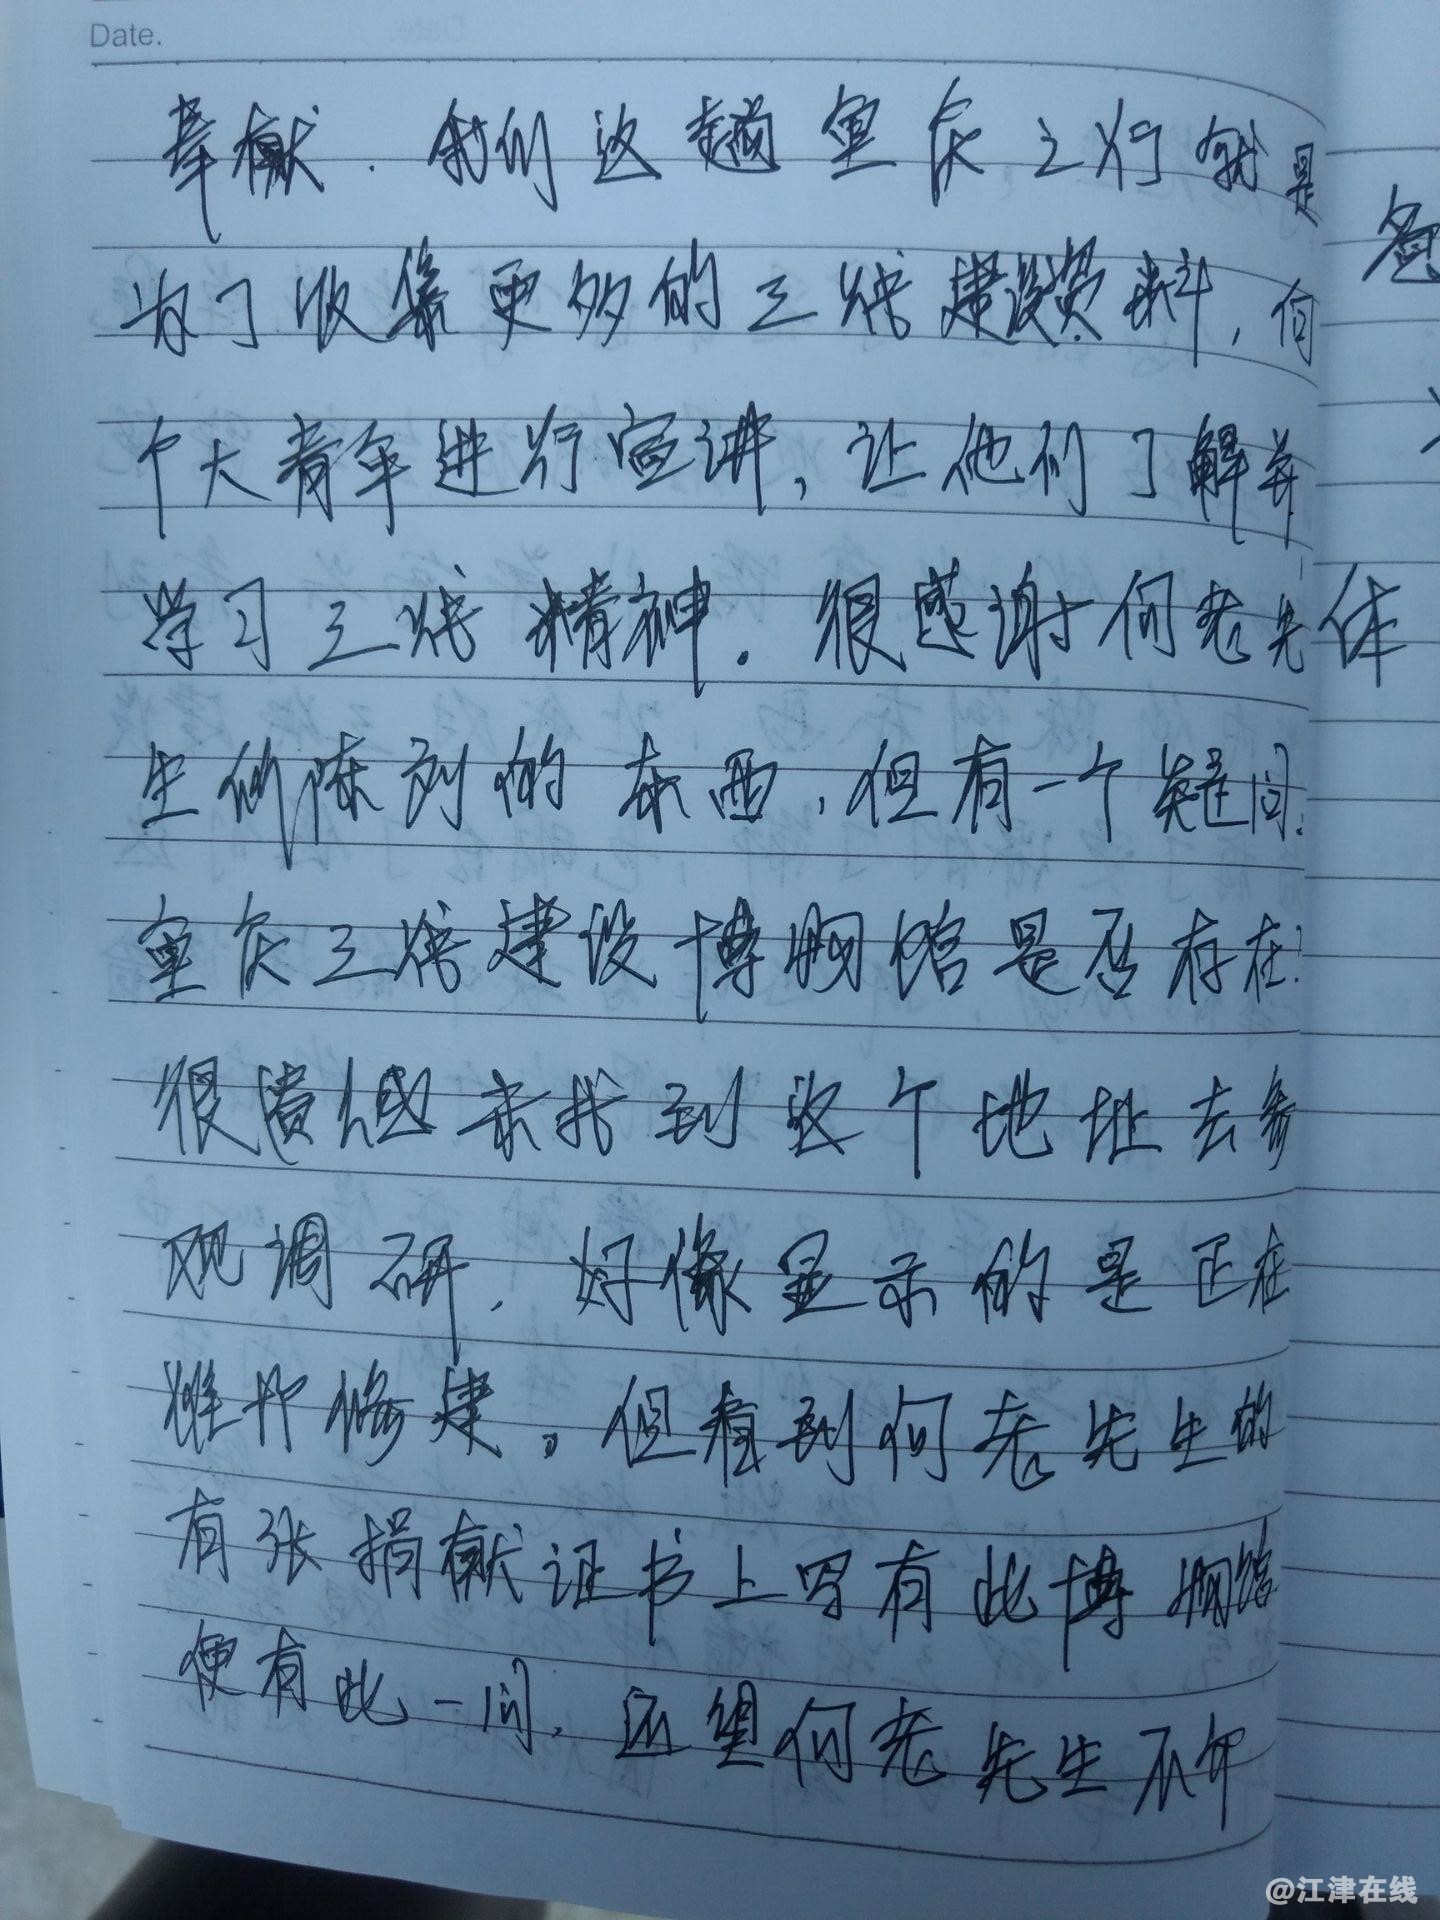 Date.
奉献.我们这趟重庆之行就是
为了收集更多的三线建设资料,向
个大青年进行宣讲,让他们了解并
学习三线精神。很感谢何老先
生所陈列的东西,但有一个疑问:
重庆三线建设博物馆是否存在?
很遗憾未找到这个地址去参
观调研,好像显示的是正在
推介修建。但看到何老先生的
有张捐献证书上写有此博物馆
便有此一问,还望何老先生不吝
体
@江津在线